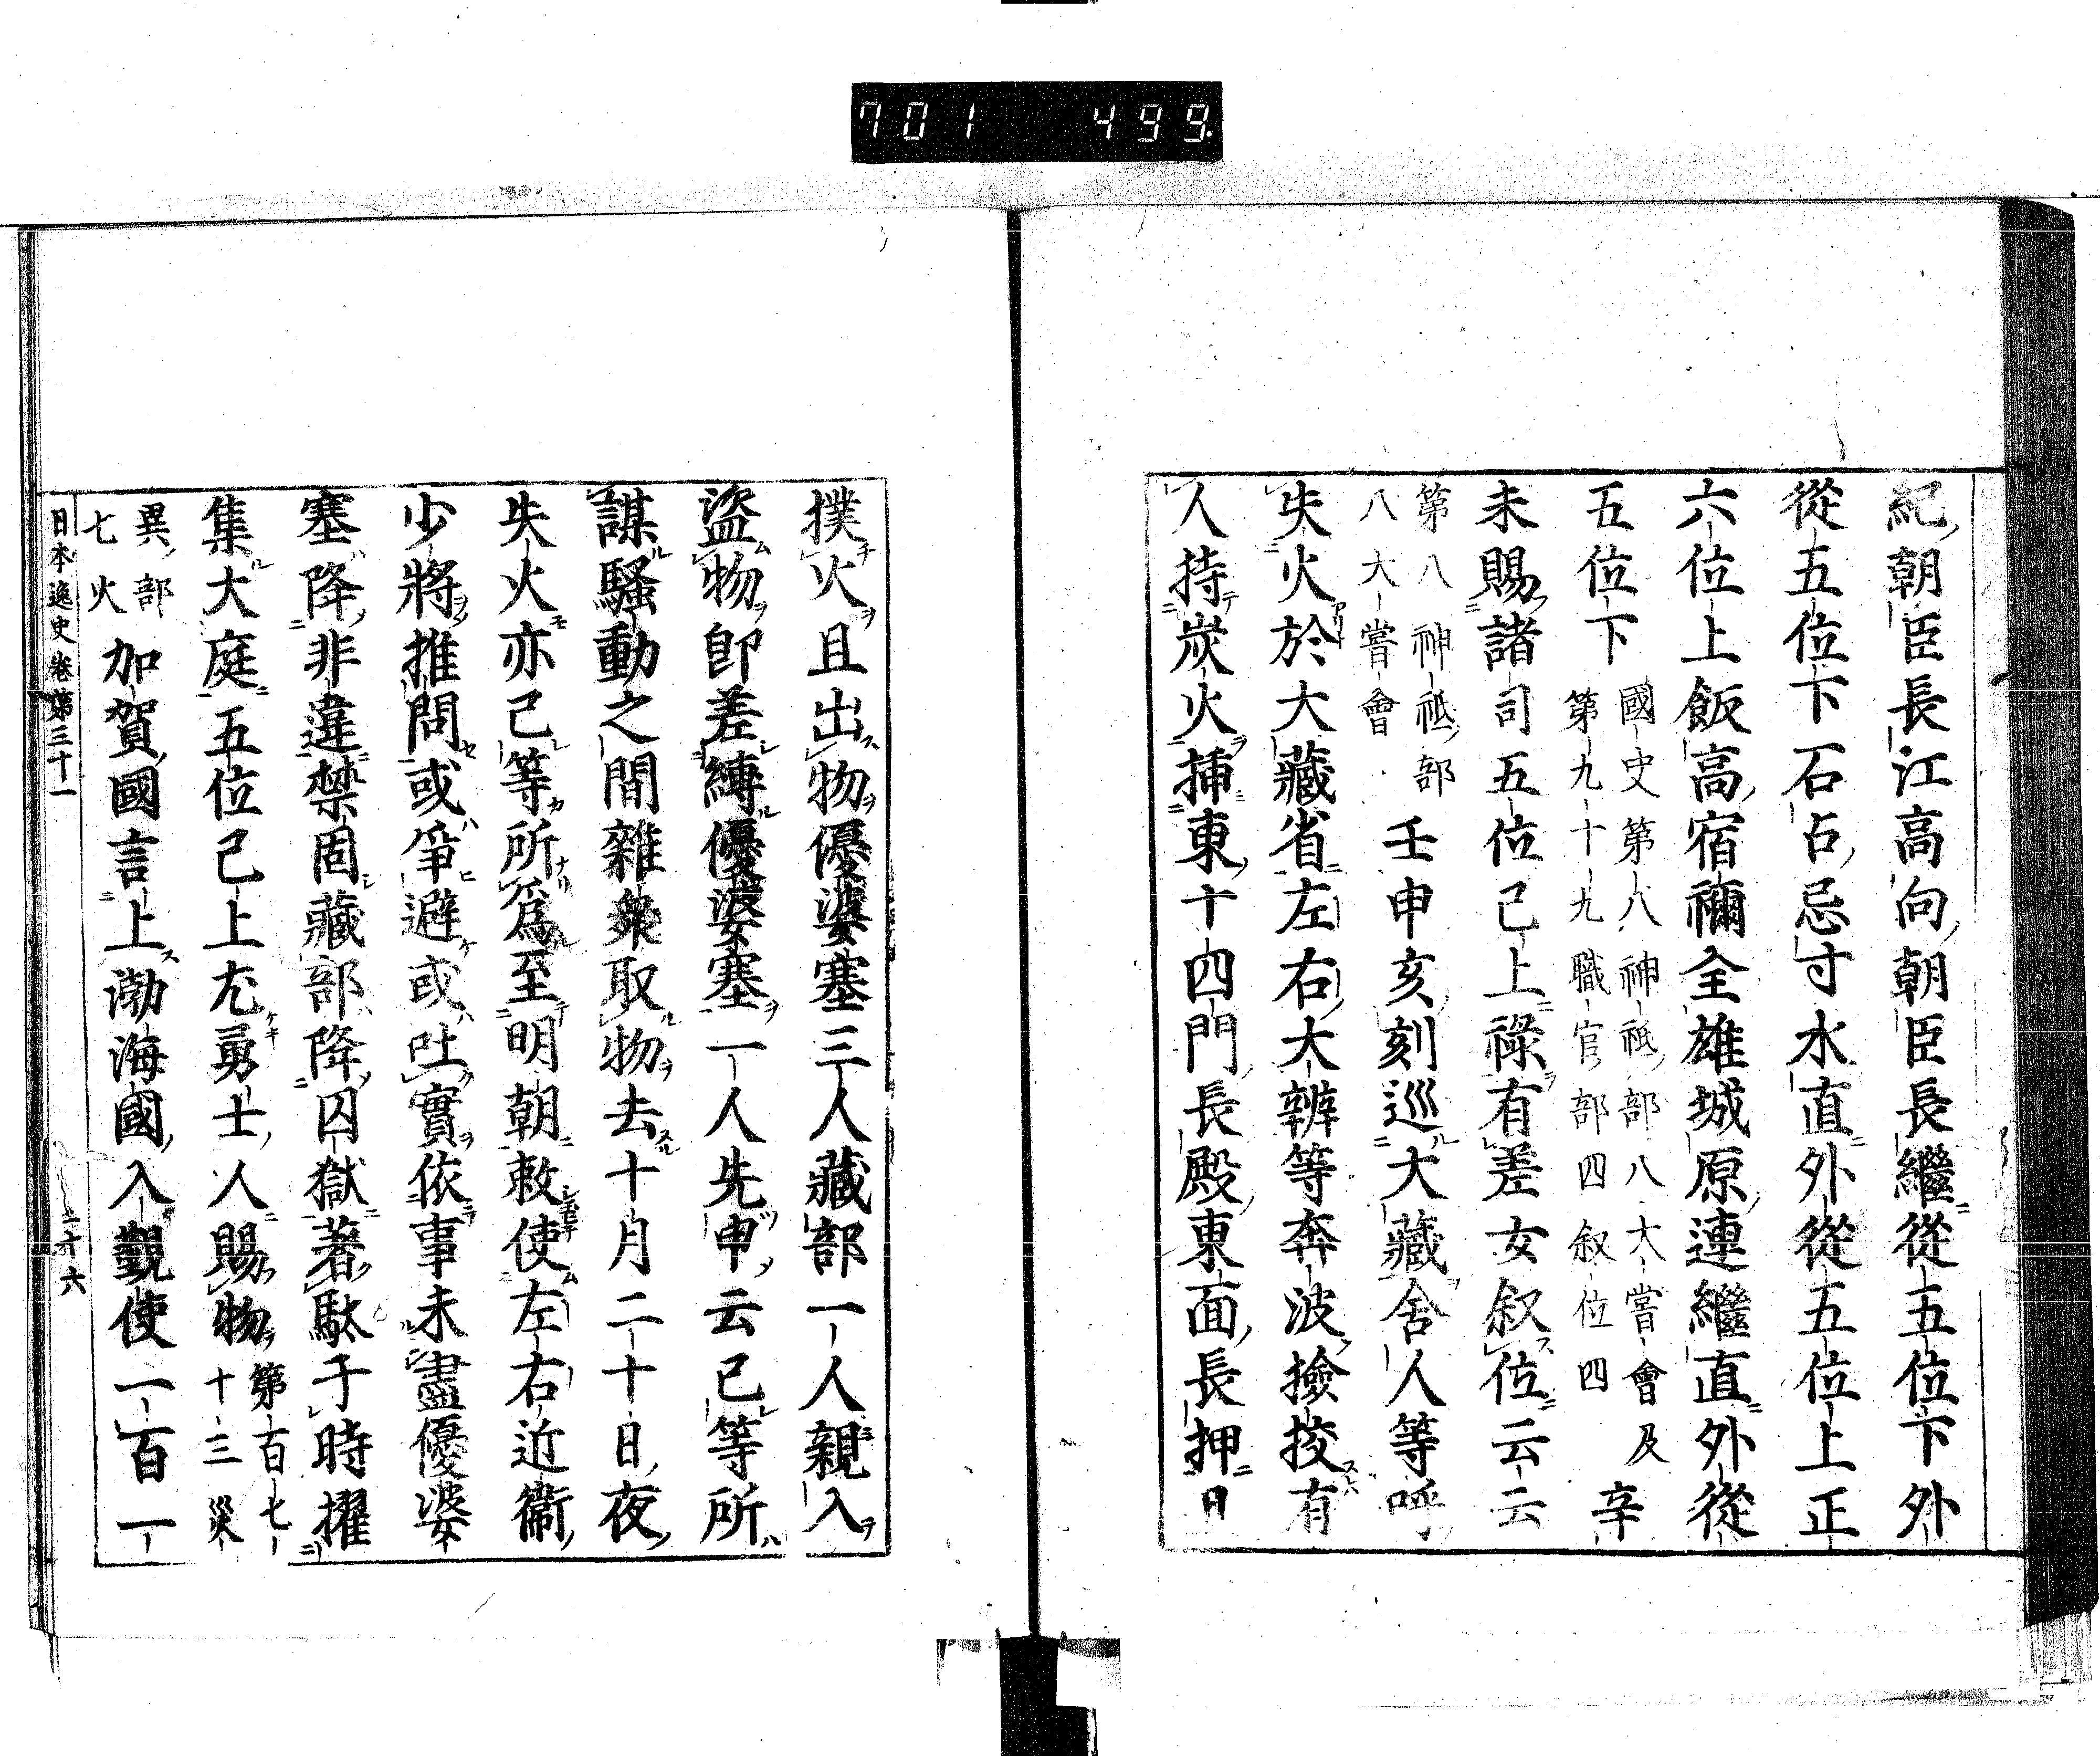 701 499
紀朝臣長江高向朝臣長繼從五位下外
從五位下石占忌寸水直外從五位上正
六位上飯高宿禰全雄城原連繼直外從
五位下
國史第八神祇部八大嘗會及
第九十九職官部四叙位四
辛
未賜諸司五位已上祿有差女叙位云云
第八神祇部
八大嘗會
壬申亥刻巡大藏舍人等呼
失火於大藏省左右大辨等奔波撿挍有
人持炭火挿東十四門長殿東面長押日
撲火且出物優婆塞三人藏部一人親入
盜物卽差縛優婆塞一人先申云已等所
謀騷動之間雜衆取物去十月二十日夜
失火亦己等所爲至明朝敕使左右近衞
少將推問或爭避或吐實依事未盡優婆
塞降非違禁固藏部降囚獄著駄于時擢
集大庭五位已上尤勇士人賜物
第百七
十三災
異部
七火
加賀國言上渤海國入覲使一百一
日本逸史卷第三十一
二十六